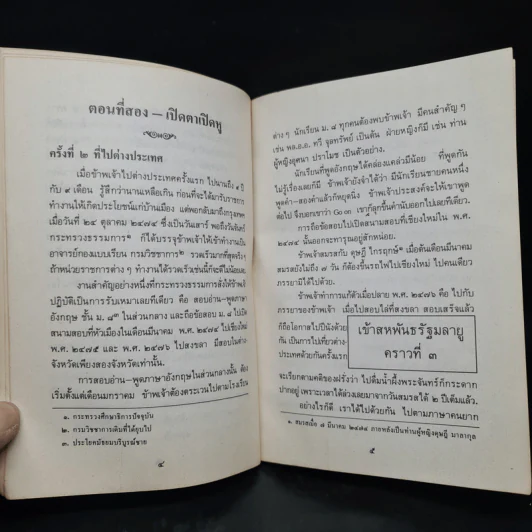 ตอนที่สอง – เปิดตาเปิดหู
ครั้งที่ ๒ ที่ไปต่างประเทศ
เมื่อข้าพเจ้าไปต่างประเทศครั้งแรก ไปนานถึง ๙ ปี
กับ ๙ เดือน รู้สึกว่านานเหลือเกิน ก่อนที่จะได้มารับราชการ
ทำงานให้เกิดประโยชน์แก่บ้านเมือง แต่พอกลับมาถึงกรุงเทพฯ
เมื่อวันที่ ๒๔ ตุลาคม ๒๔๗๔ ซึ่งเป็นวันเสาร์ พอถึงวันจันทร์
กระทรวงธรรมการ๑ ก็ได้บรรจุข้าพเจ้าให้เข้าทำงานเป็น
อาจารย์กองแบบเรียน กรมวิชาการ๒ รวดเร็วมากที่สุดจริง ๆ
ถ้าหน่วยราชการต่าง ๆ ทำงานได้รวดเร็วเช่นนี้ก็จะดีไม่น้อยเลย
งานสำคัญอย่างหนึ่งที่กระทรวงธรรมการสั่งให้ข้าพเจ้า
ปฏิบัติเป็นการรับเหมาเลยทีเดียว คือ สอบอ่าน–พูดภาษา
อังกฤษ ชั้น ม. ๘๓ ในส่วนกลาง และถือข้อสอบ ม. ๘ ไปเปิด
สนามสอบที่หัวเมืองในเดือนมีนาคม พ.ศ. ๒๔๗๔ ไปเชียงใหม่
พ.ศ. ๒๔๗๕ และ ๒๔๗๖ ไปสงขลา มีสอบในต่าง
จังหวัดเพียงสองจังหวัดเท่านั้น
การสอบอ่าน–พูดภาษาอังกฤษในส่วนกลางนั้น ต้อง
เริ่มตั้งแต่เดือนมกราคม ข้าพเจ้าต้องตระเวนไปตามโรงเรียน
๑. กระทรวงศึกษาธิการปัจจุบัน
๒. กรมวิชาการเดิมที่ได้ยุบไป
๓. ประโยคมัธยมบริบูรณ์ชาย
๔
ต่าง ๆ นักเรียน ม. ๘ ทุกคนต้องพบข้าพเจ้า มีคนสำคัญ ๆ
เช่น พล.อ.อ. ทวี จุลทรัพย์ เป็นต้น ฝ่ายหญิงก็มี เช่น ท่าน
ผู้หญิงอุศนา ปราโมช เป็นตัวอย่าง
นักเรียนที่พูดอังกฤษได้คล่องแคล่วมีน้อย ที่พูดกัน
ไม่รู้เรื่องเลยก็มี ข้าพเจ้ายังจำได้ว่า มีนักเรียนชายคนหนึ่ง
พูดคำ–สองคำแล้วก็หยุดนิ่ง ข้าพเจ้าประสงค์จะให้เขาพูด
ต่อไป จึงบอกเขาว่า Go on เขาก็ลุกขึ้นคำนับออกไปเลยทีเดียว
การถือข้อสอบไปเปิดสนามสอบที่เชียงใหม่ใน พ.ศ.
๒๔๗๔ นั้นออกจะทารุณอยู่สักหน่อย
ข้าพเจ้าสมรสกับ ดุษฎี ไกรฤกษ์๑ เมื่อต้นเดือนมีนาคม
สมรสยังไม่ถึง ๗ วัน ก็ต้องขึ้นรถไฟไปเชียงใหม่ ไปคนเดียว
ภรรยามิได้ไปด้วย
ข้าพเจ้าทำการแก้ตัวเมื่อปลาย พ.ศ. ๒๔๗๖ คือ ไปกับ
ภรรยาของข้าพเจ้า เมื่อไปสอบไล่ที่สงขลา สอบเสร็จแล้ว
ก็ถือโอกาสไปปีนัง
เป็นการไปเที่ยว
ประเทศด้วยกันครั้งแรก
เข้าสหพันธรัฐมลายู
คราวที่ ๓
จะเรียกตามคติของฝรั่งว่า ไปดื่มน้ำผึ้งพระจันทร์ก็กระดาก
ปากอยู่ เพราะเวลาได้ล่วงเลยมาจากวันสมรสได้ ๒ ปีเต็มแล้ว
อย่างไรก็ดี เราได้ไปด้วยกัน ไปตามภาคานยาก
๑. สมรสเมื่อ ๘ มีนาคม ๒๔๗๔ ภายหลังเป็นท่านผู้หญิงดุษฎี มาลากุล
๕